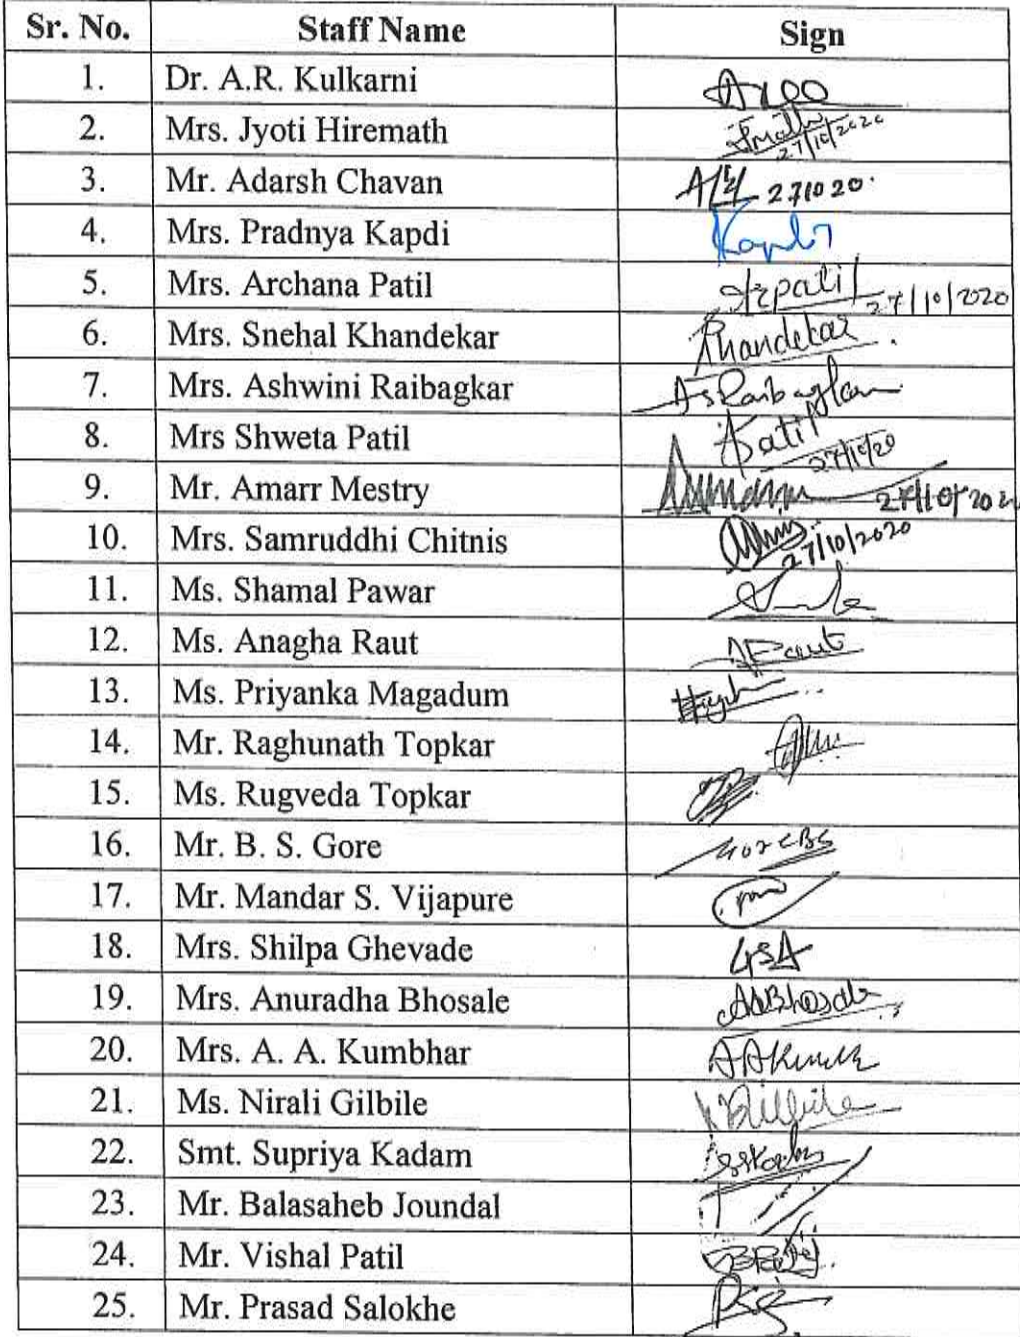 Sr. No. Staff Name Sign
1. Dr. A.R. Kulkarni
2. Mrs. Jyoti Hiremath 27/10/2020
3. Mr. Adarsh Chavan 271020.
4. Mrs. Pradnya Kapdi Kapdi
5. Mrs. Archana Patil patil 27/10/2020
6. Mrs. Snehal Khandekar Khandekar
7. Mrs. Ashwini Raibagkar AsRaibagkar
8. Mrs Shweta Patil Patil 27/10/20
9. Mr. Amarr Mestry
10. Mrs. Samruddhi Chitnis 27/10/2020
11. Ms. Shamal Pawar
12. Ms. Anagha Raut ARaut
13. Ms. Priyanka Magadum
14. Mr. Raghunath Topkar
15. Ms. Rugveda Topkar
16. Mr. B. S. Gore GoreBS
17. Mr. Mandar S. Vijapure
18. Mrs. Shilpa Ghevade GSA
19. Mrs. Anuradha Bhosale ABhosale
20. Mrs. A. A. Kumbhar
21. Ms. Nirali Gilbile NGilbile
22. Smt. Supriya Kadam
23. Mr. Balasaheb Joundal
24. Mr. Vishal Patil
25. Mr. Prasad Salokhe